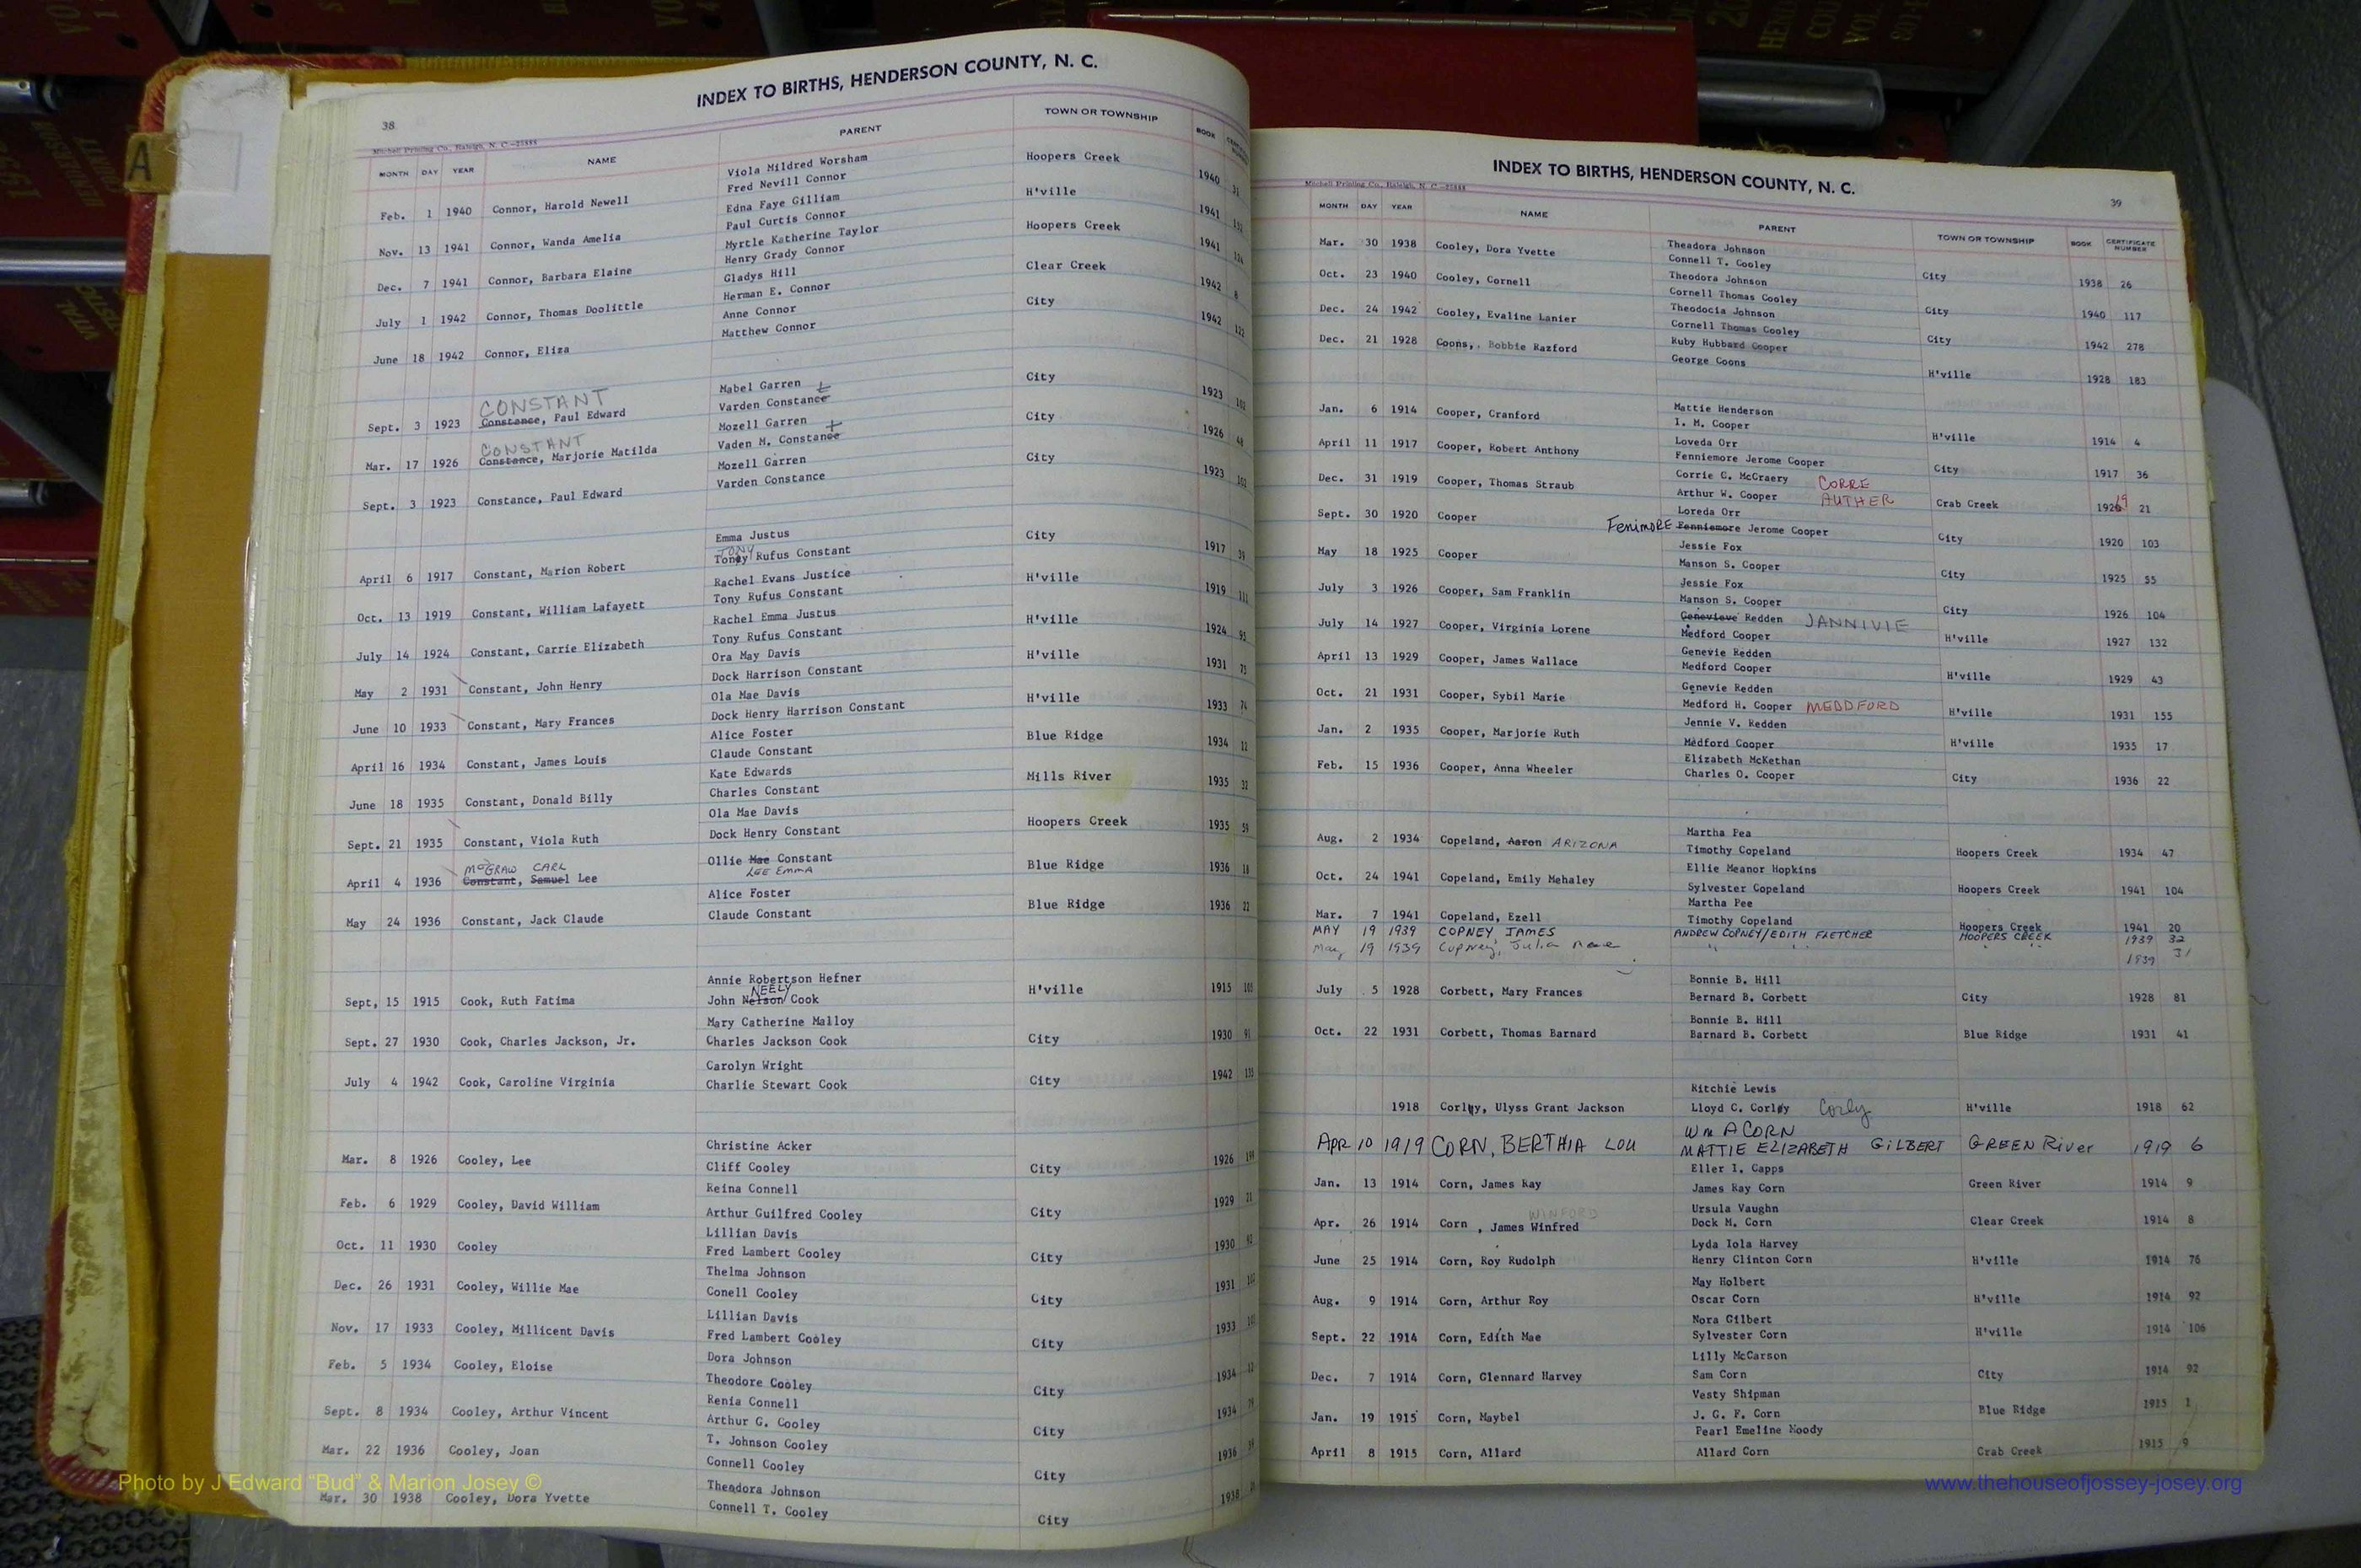 INDEX TO BIRTHS, HENDERSON COUNTY, N. C.
38
Mitchell Printing Co., Raleigh, N. C.—25888
MONTH DAY YEAR NAME PARENT TOWN OR TOWNSHIP BOOK
Viola Mildred Worsham Hoopers Creek
Feb. 1 1940 Connor, Harold Newell Fred Nevill Connor 1940 31
Edna Faye Gilliam H'ville
Nov. 13 1941 Connor, Wanda Amelia Paul Curtis Connor 1941
Myrtle Katherine Taylor Hoopers Creek
Dec. 7 1941 Connor, Barbara Elaine Henry Grady Connor 1941
Gladys Hill Clear Creek
July 1 1942 Connor, Thomas Doolittle Herman E. Connor 1942
Anne Connor City
June 18 1942 Connor, Eliza Matthew Connor 1942 122
Mabel Garren City
CONSTANT t
Sept. 3 1923 Constance, Paul Edward Varden Constance 1923 102
Mozell Garren City
CONSTANT t
Mar. 17 1926 Constance, Marjorie Matilda Vaden M. Constance 1926 48
Mozell Garren City
Sept. 3 1923 Constance, Paul Edward Varden Constance 1923 102
Emma Justus City
TONY
April 6 1917 Constant, Marion Robert Toney Rufus Constant 1917 39
Rachel Evans Justice H'ville
Oct. 13 1919 Constant, William Lafayett Tony Rufus Constant 1919 111
Rachel Emma Justus H'ville
July 14 1924 Constant, Carrie Elizabeth Tony Rufus Constant 1924 95
Ora May Davis H'ville
May 2 1931 Constant, John Henry Dock Harrison Constant 1931 75
Ola Mae Davis H'ville
June 10 1933 Constant, Mary Frances Dock Henry Harrison Constant 1933 74
Alice Foster Blue Ridge
April 16 1934 Constant, James Louis Claude Constant 1934 12
Kate Edwards Mills River
June 18 1935 Constant, Donald Billy Charles Constant 1935 32
Ola Mae Davis Hoopers Creek
Sept. 21 1935 Constant, Viola Ruth Dock Henry Constant 1935 59
McGRAW CARL Ollie Mae Constant Blue Ridge
April 4 1936 Constant, Samuel Lee LEE EMMA 1936 18
Alice Foster Blue Ridge
May 24 1936 Constant, Jack Claude Claude Constant 1936 22
Annie Robertson Hefner H'ville
NEELY
Sept, 15 1915 Cook, Ruth Fatima John Nelson Cook 1915 105
Mary Catherine Malloy
Sept. 27 1930 Cook, Charles Jackson, Jr. Charles Jackson Cook City 1930 91
Carolyn Wright
July 4 1942 Cook, Caroline Virginia Charlie Stewart Cook City 1942 155
Christine Acker
Mar. 8 1926 Cooley, Lee Cliff Cooley City 1926
Reina Connell
Feb. 6 1929 Cooley, David William Arthur Guilfred Cooley City 1929 21
Lillian Davis
Oct. 11 1930 Cooley Fred Lambert Cooley City 1930 92
Thelma Johnson
Dec. 26 1931 Cooley, Willie Mae Conell Cooley City 1931
Lillian Davis
Nov. 17 1933 Cooley, Millicent Davis Fred Lambert Cooley City 1933
Dora Johnson
Feb. 5 1934 Cooley, Eloise Theodore Cooley City 1934 12
Renia Connell
Sept. 8 1934 Cooley, Arthur Vincent Arthur G. Cooley City 1934
T. Johnson Cooley
Mar. 22 1936 Cooley, Joan Connell Cooley City 1936
Theadora Johnson
Mar. 30 1938 Cooley, Dora Yvette Connell T. Cooley City 1938
INDEX TO BIRTHS, HENDERSON COUNTY, N. C.
Mitchell Printing Co., Raleigh, N. C.—25888
39
MONTH DAY YEAR NAME PARENT TOWN OR TOWNSHIP BOOK CERTIFICATE NUMBER
Theadora Johnson
Mar. 30 1938 Cooley, Dora Yvette Connell T. Cooley City 1938 26
Theodora Johnson
Oct. 23 1940 Cooley, Cornell Cornell Thomas Cooley City 1940 117
Theodocia Johnson
Dec. 24 1942 Cooley, Evaline Lanier Cornell Thomas Cooley City 1942 278
Ruby Hubbard Cooper
Dec. 21 1928 Coons, Bobbie Razford George Coons H'ville 1928 183
Mattie Henderson
Jan. 6 1914 Cooper, Cranford I. M. Cooper H'ville 1914 4
Loveda Orr
April 11 1917 Cooper, Robert Anthony Fenniemore Jerome Cooper City 1917 36
Corrie C. McCraery CORRE
Dec. 31 1919 Cooper, Thomas Straub Arthur W. Cooper AUTHER Crab Creek 1920 19 21
Loreda Orr
Sept. 30 1920 Cooper Fenimore Fenniemore Jerome Cooper City 1920 103
Jessie Fox
May 18 1925 Cooper Manson S. Cooper City 1925 55
Jessie Fox
July 3 1926 Cooper, Sam Franklin Manson S. Cooper City 1926 104
Genevieve Redden JANNIVIE
July 14 1927 Cooper, Virginia Lorene Medford Cooper H'ville 1927 132
Genevie Redden
April 13 1929 Cooper, James Wallace Medford Cooper H'ville 1929 43
Genevie Redden
Oct. 21 1931 Cooper, Sybil Marie Medford H. Cooper MEDDFORD H'ville 1931 155
Jennie V. Redden
Jan. 2 1935 Cooper, Marjorie Ruth Medford Cooper H'ville 1935 17
Elizabeth McKethan
Feb. 15 1936 Cooper, Anna Wheeler Charles O. Cooper City 1936 22
Martha Pea
Aug. 2 1934 Copeland, Aaron ARIZONA Timothy Copeland Hoopers Creek 1934 47
Ellie Meanor Hopkins
Oct. 24 1941 Copeland, Emily Mehaley Sylvester Copeland Hoopers Creek 1941 104
Martha Pee
Mar. 7 1941 Copeland, Ezell Timothy Copeland Hoopers Creek 1941 20
MAY 19 1939 COPNEY JAMES ANDREW COPNEY/EDITH FLETCHER HOOPERS CREEK 1939 32
May 19 1939 Copney, Julia " " " " 1939 31
Bonnie B. Hill
July 5 1928 Corbett, Mary Frances Bernard B. Corbett City 1928 81
Bonnie B. Hill
Oct. 22 1931 Corbett, Thomas Barnard Barnard B. Corbett Blue Ridge 1931 41
Ritchie Lewis
1918 Corley, Ulyss Grant Jackson Lloyd C. Corley Corly H'ville 1918 62
Wm A CORN
Apr 10 1919 CORN, BERTHIA LOU MATTIE ELIZABETH GILBERT GREEN River 1919 6
Eller I. Capps
Jan. 13 1914 Corn, James Ray James Ray Corn Green River 1914 9
WINFORD Ursula Vaughn
Apr. 26 1914 Corn , James Winfred Dock M. Corn Clear Creek 1914 8
Lyda Iola Harvey
June 25 1914 Corn, Roy Rudolph Henry Clinton Corn H'ville 1914 76
May Holbert
Aug. 9 1914 Corn, Arthur Roy Oscar Corn H'ville 1914 92
Nora Gilbert
Sept. 22 1914 Corn, Edith Mae Sylvester Corn H'ville 1914 106
Lilly McCarson
Dec. 7 1914 Corn, Glennard Harvey Sam Corn City 1914 92
Vesty Shipman
Jan. 19 1915 Corn, Maybel J. G. F. Corn Blue Ridge 1915 1
Pearl Emeline Moody
April 8 1915 Corn, Allard Allard Corn Crab Creek 1915 9
A
Photo by J Edward “Bud” & Marion Josey ©
www.thehouseofjossey-josey.org